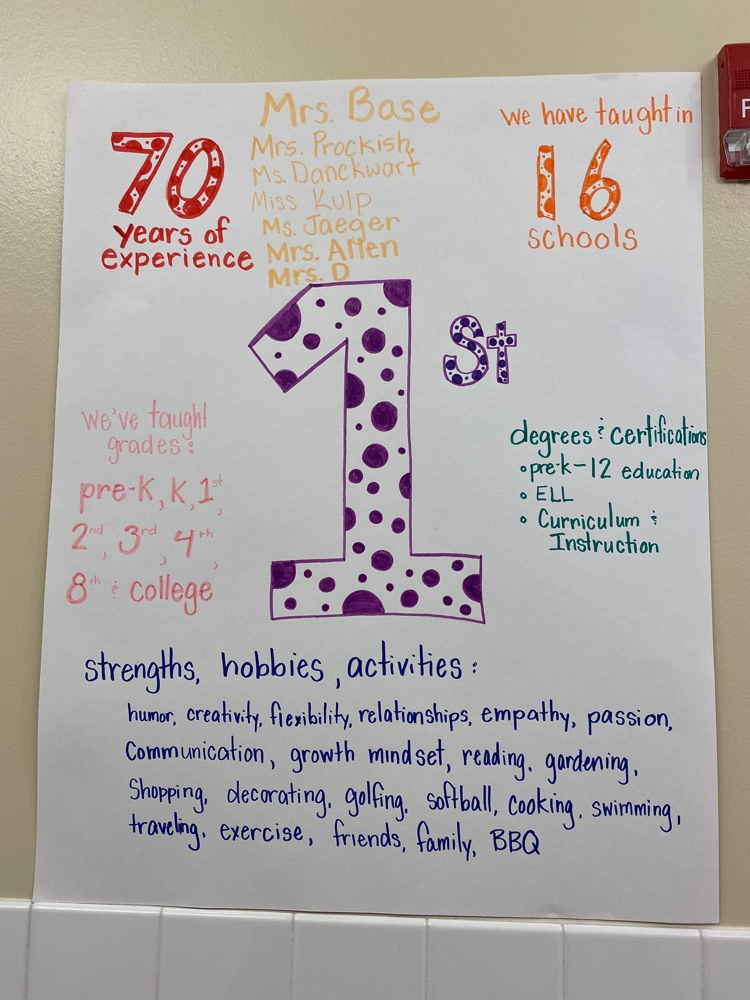 70
years of
experience
Mrs. Base
Mrs. Prockish
Ms. Danckwart
Miss Kulp
Ms. Jaeger
Mrs. Allen
Mrs. D
we have taught in
16
schools
1st
we've taught
grades:
pre-K, K, 1st,
2nd, 3rd, 4th,
8th & college
degrees & certifications
• pre-k-12 education
• ELL
• Curriculum &
Instruction
strengths, hobbies, activities:
humor, creativity, flexibility, relationships, empathy, passion,
Communication, growth mindset, reading, gardening,
Shopping, decorating, golfing, softball, cooking, swimming,
traveling, exercise, friends, family, BBQ
F